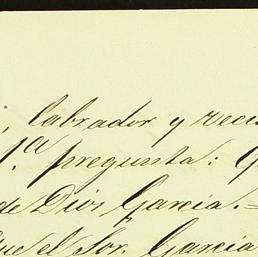 labrador y
1ª pregunta:
de Dios Garcia.=
que el Sor. Garcia